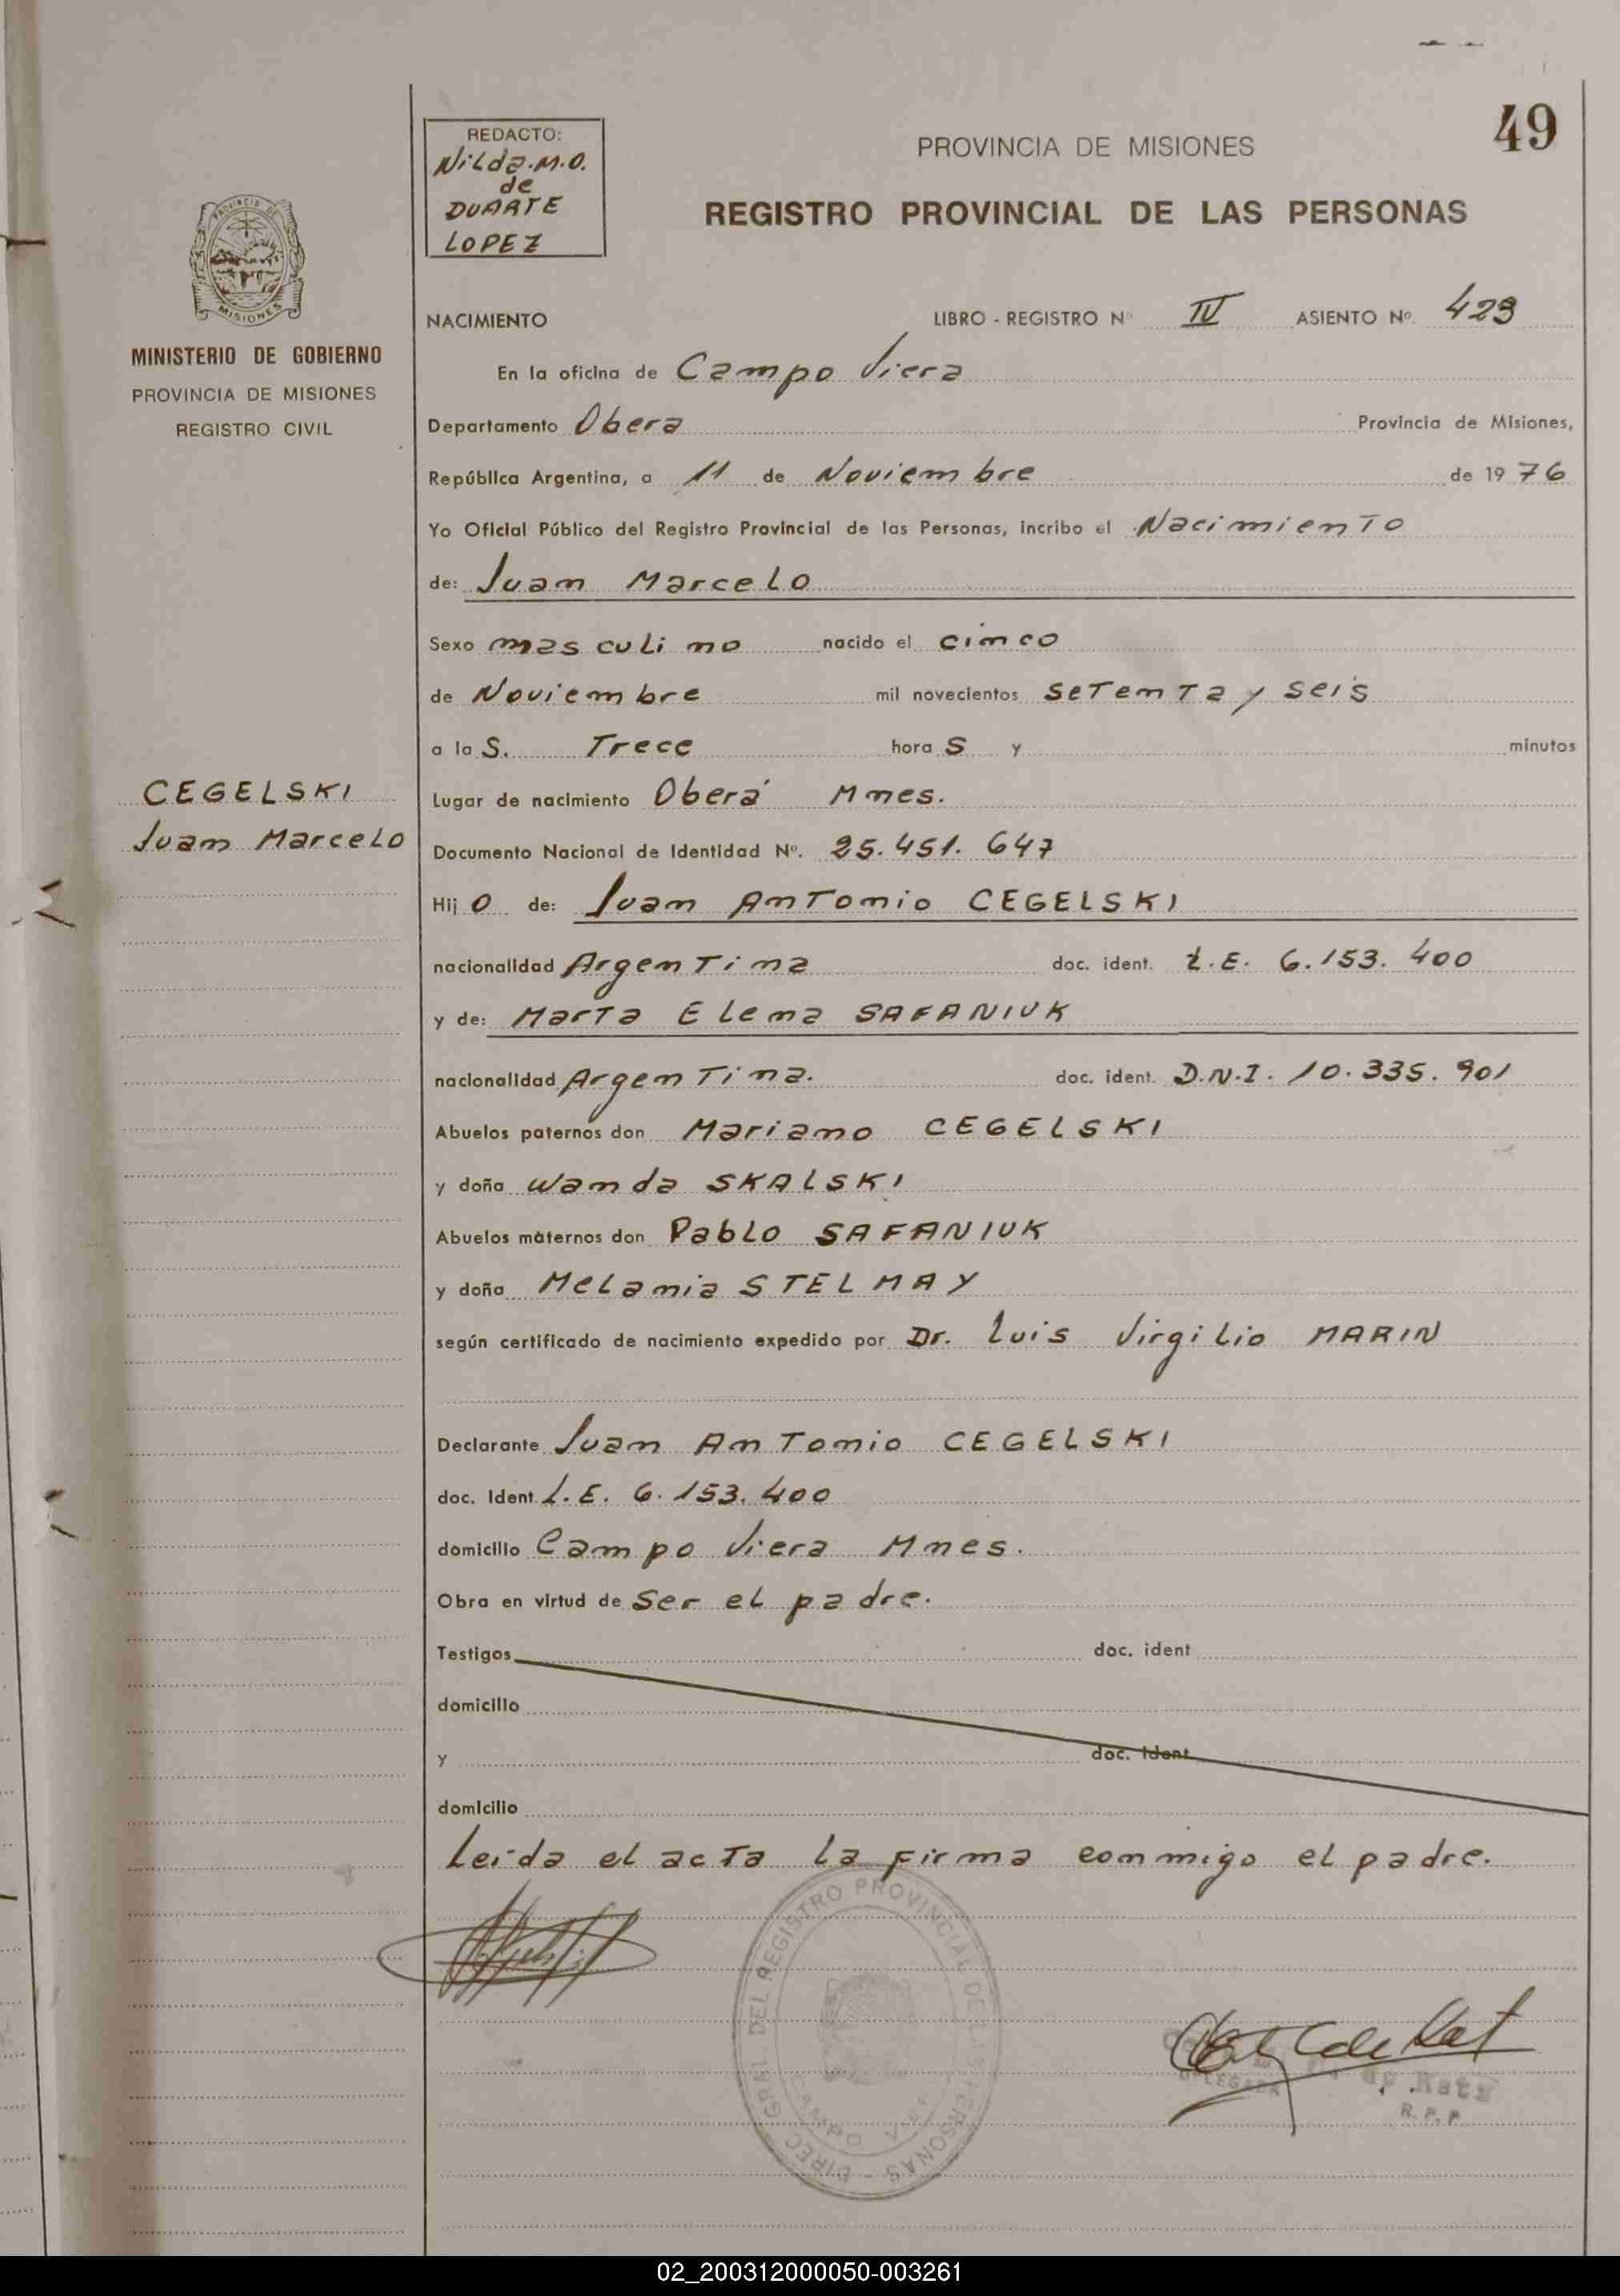 49
REDACTO:
Nilda.M.O.
de
DUARTE
LOPEZ
PROVINCIA DE MISIONES
REGISTRO PROVINCIAL DE LAS PERSONAS
PROVINCIA DE
MISIONES
MINISTERIO DE GOBIERNO
PROVINCIA DE MISIONES
REGISTRO CIVIL
NACIMIENTO LIBRO - REGISTRO Nº IV ASIENTO Nº. 423
En la oficina de Campo Viera
Departamento Obera Provincia de Misiones,
República Argentina, a 11 de Noviembre de 19 76
Yo Oficial Público del Registro Provincial de las Personas, incribo el Nacimiento
de: Juan Marcelo
Sexo masculino nacido el cinco
de Noviembre mil novecientos setenta y seis
a la S. Trece hora S y minutos
CEGELSKI
Juan Marcelo
Lugar de nacimiento Oberá Mnes.
Documento Nacional de Identidad Nº. 25.451.647
Hij o de: Juan Antonio CEGELSKI
nacionalidad Argentina doc. ident. L.E. 6.153.400
y de: Marta Elena SAFANIUK
nacionalidad Argentina. doc. ident. D.N.I. 10.335.901
Abuelos paternos don Mariano CEGELSKI
y doña Wanda SKALSKI
Abuelos maternos don Pablo SAFANIUK
y doña Melania STELMAY
según certificado de nacimiento expedido por Dr. Luis Virgilio MARIN
Declarante Juan Antonio CEGELSKI
doc. Ident. L.E. 6.153.400
domicilio Campo Viera Mnes.
Obra en virtud de ser el padre.
Testigos doc. ident
domicilio
y doc. ident
domicilio
Leída el acta la firma conmigo el padre.
DIREC. GRAL. DEL REGISTRO PROVINCIAL DE LAS PERSONAS -
CAMPO
de Katz
DELEGADA
R.P.P.
02_200312000050-003261